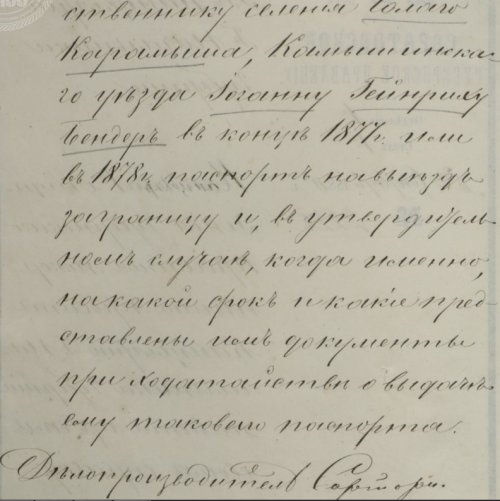 ственнику селенія Голаго
Карамыша, Камышинска-
го уѣзда Іоганну Гейнриху
Бендеръ въ концѣ 1877 г. или
въ 1878 г. паспортъ на выѣздъ
заграницу и, въ утвердитель-
номъ случаѣ, когда именно,
на какой срокъ и какіе пред-
ставлены имъ документы
при ходатайствѣ о выдачѣ
ему таковаго паспорта.
Дѣлопроизводитель